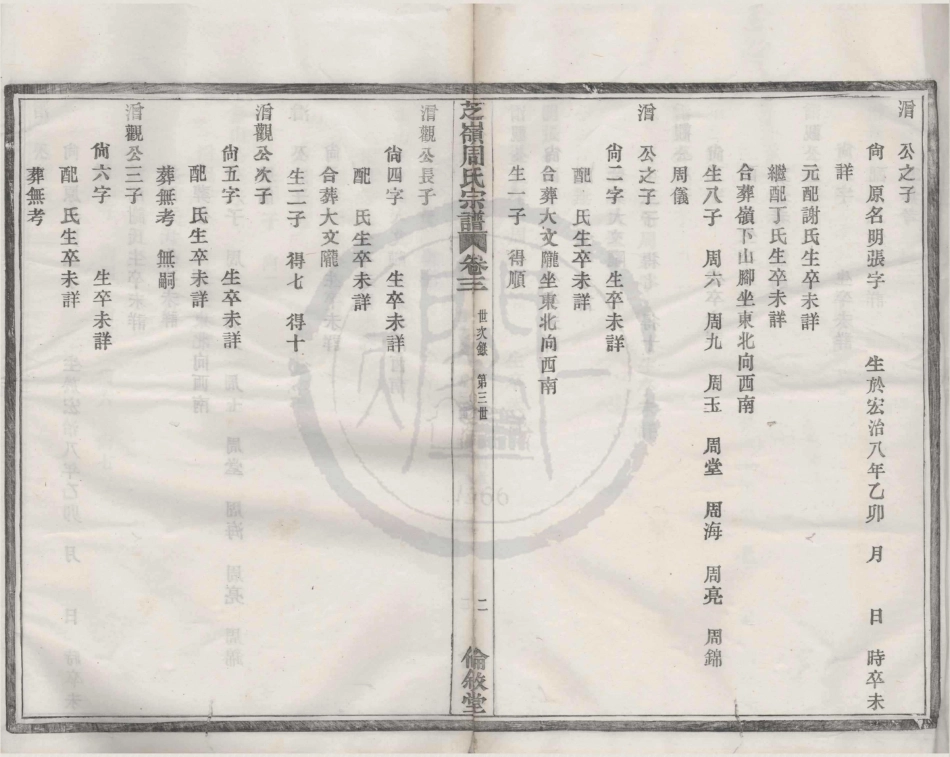 潪 公之子
尙 原名明張字 生於宏治八年乙卯 月 日 時卒未
詳
元配謝氏生卒未詳
繼配丁氏生卒未詳
合葬嶺下山腳坐東北向西南
生八子 周六 周九 周玉 周堂 周海 周亮 周錦
周儀
潪 公之子
尙二字 生卒未詳
配 氏生卒未詳
合葬大文隴坐東北向西南
生一子 得順
芝嶺周氏宗譜 卷三 世次錄 第三世 二 倫敘堂
潪觀公長子
尙四字 生卒未詳
配 氏生卒未詳
合葬大文隴
生二子 得七 得十
潪觀公次子
尙五字 生卒未詳
配 氏生卒未詳
葬無考 無嗣
潪觀公三子
尙六字 生卒未詳
配 氏生卒未詳
葬無考